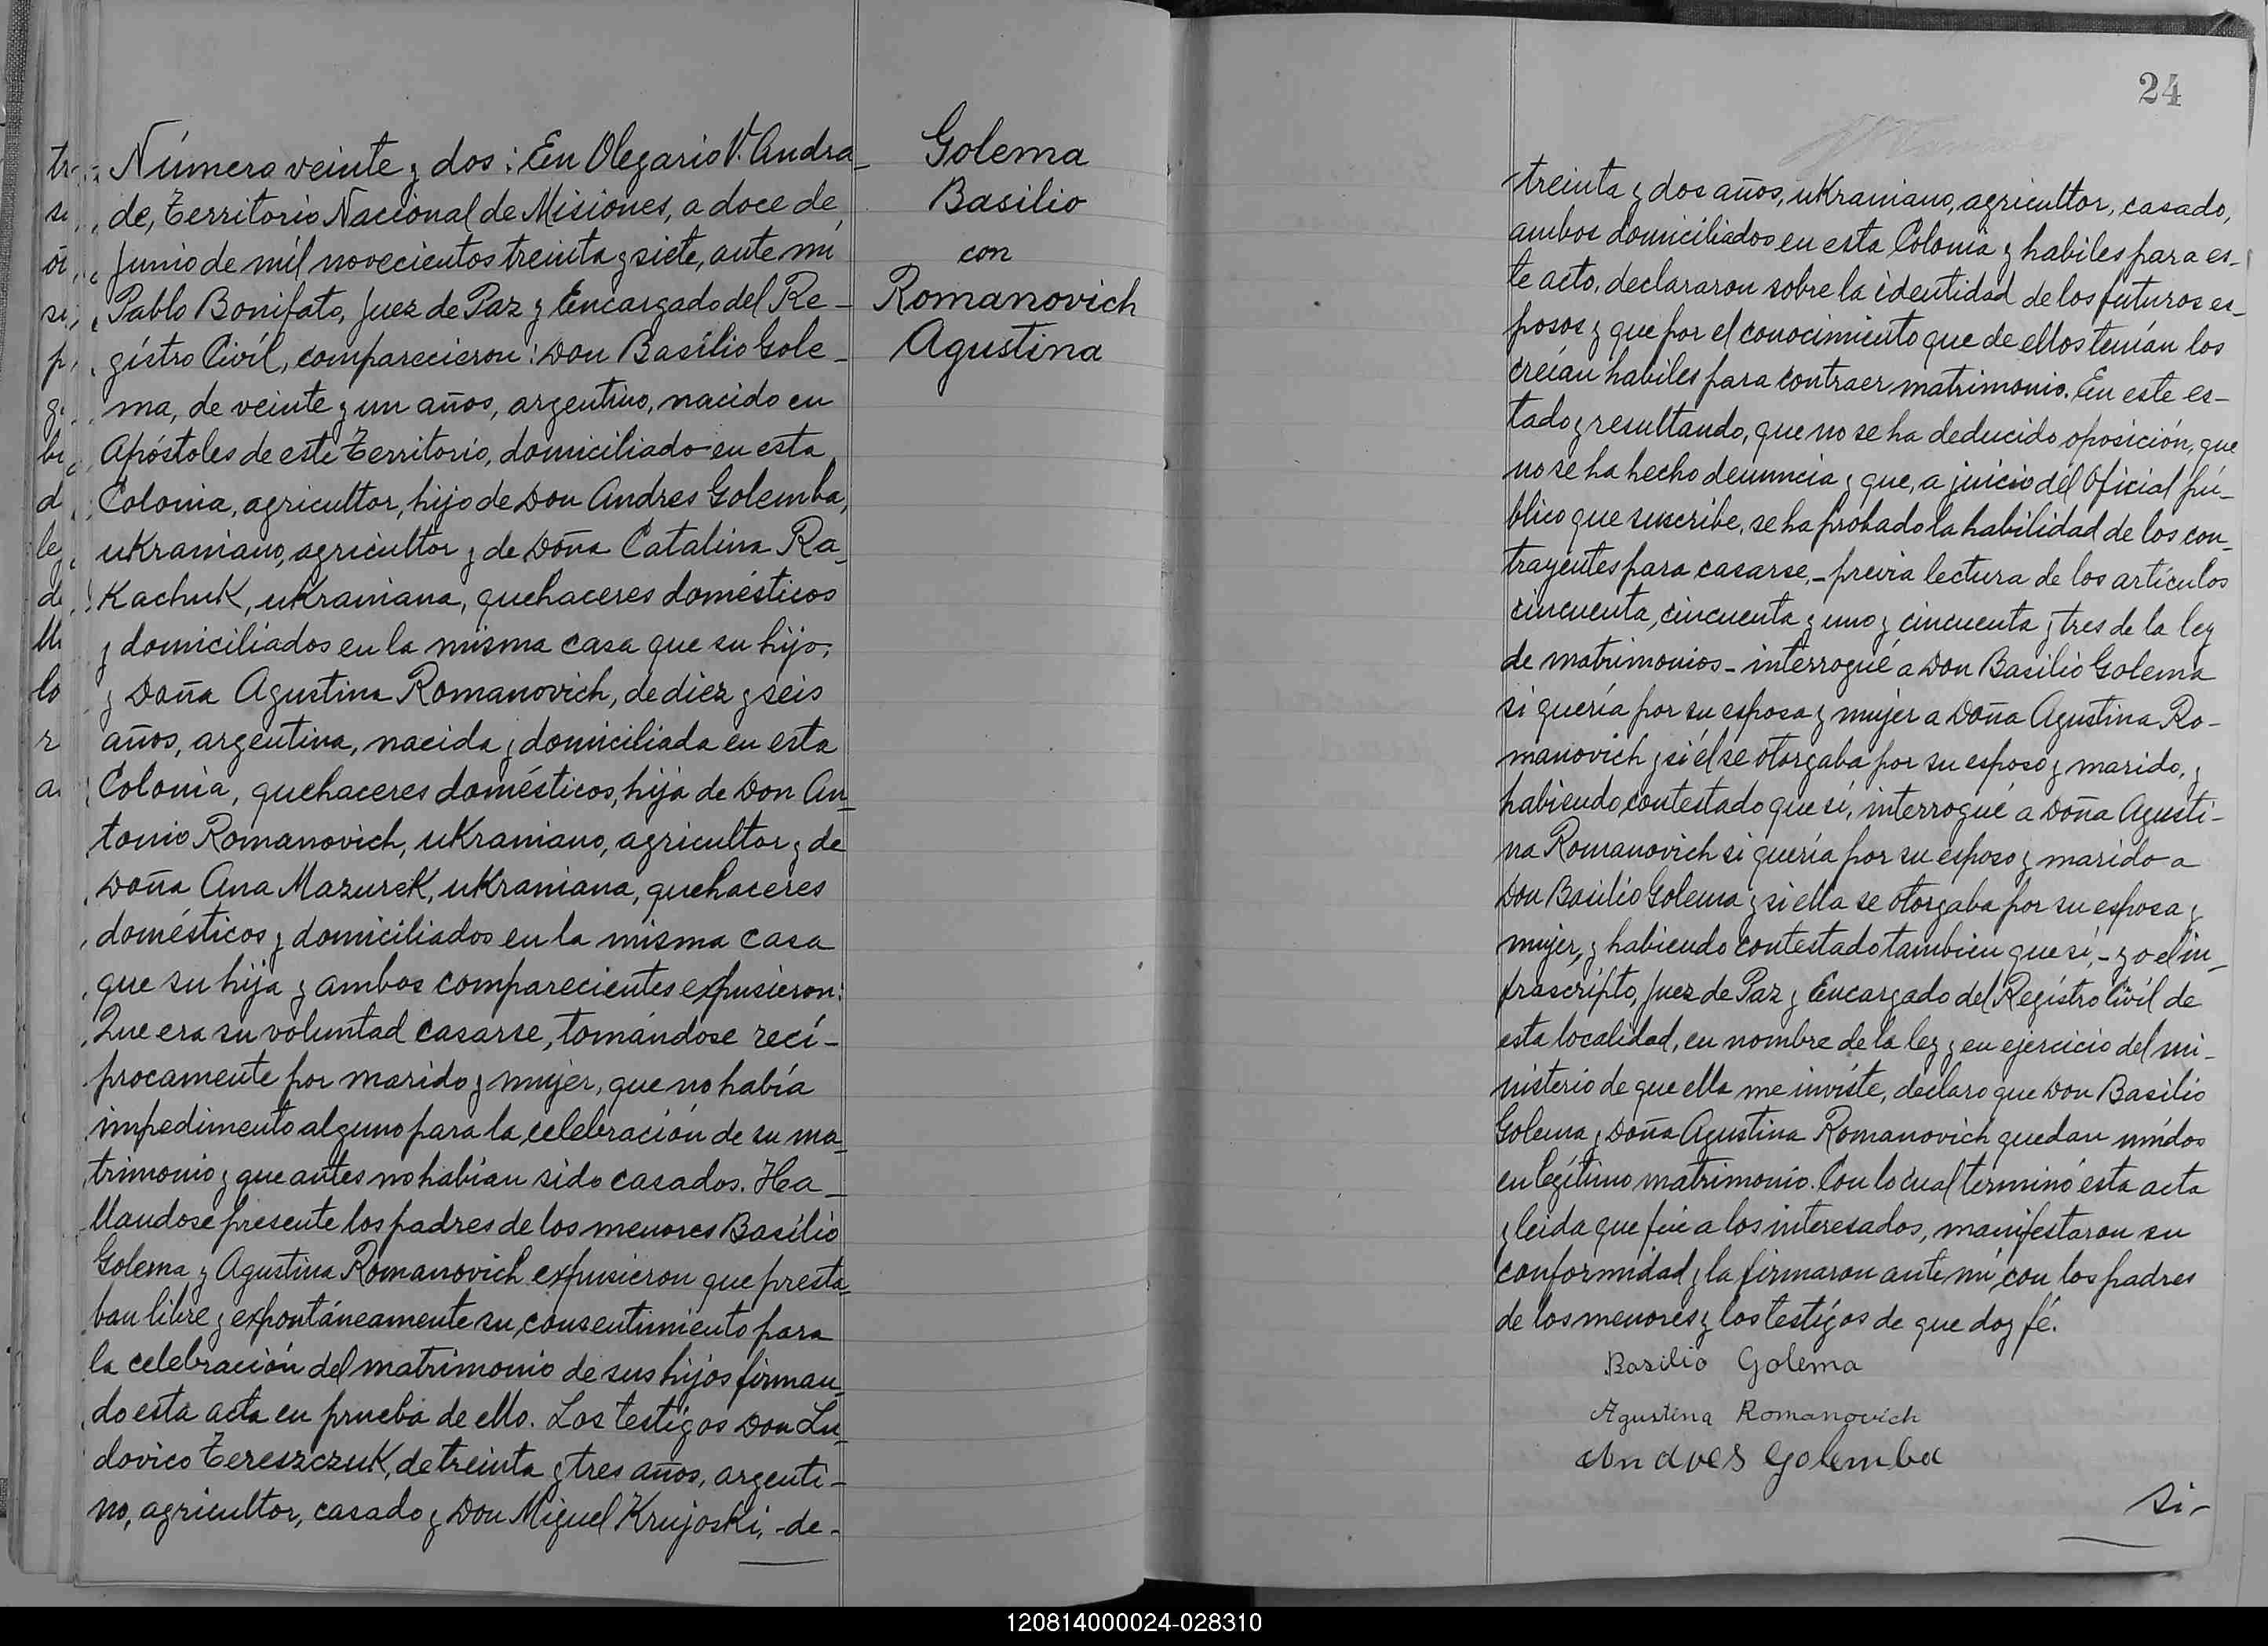 Número veinte y dos: En Olegario V. Andra-
de, Territorio Nacional de Misiones, a doce de
Junio de mil novecientos treinta y siete, ante mí
Pablo Bonifato, Juez de Paz y Encargado del Re-
gistro Civíl, comparecieron: Don Basilio Gole-
ma, de veinte y un años, argentino, nacido en
Apóstoles de este Territorio, domiciliado en esta
Colonia, agricultor, hijo de Don Andres Golemba,
ukraniano, agricultor y de Doña Catalina Ra-
kachuk, ukraniana, quehaceres domésticos
y domiciliados en la misma casa que su hijo;
y Doña Agustina Romanovich, de diez y seis
años, argentina, nacida y domiciliada en esta
Colonia, quehaceres domésticos, hija de Don An-
tonio Romanovich, ukraniano, agricultor y de
Doña Ana Mazurek, ukraniana, quehaceres
domésticos y domiciliados en la misma casa
que su hija y ambos comparecientes expusieron:
Que era su voluntad casarse, tomándose recí-
procamente por marido y mujer, que no había
impedimento alguno para la celebración de su ma-
trimonio y que antes no habían sido casados. Ha-
llandose presente los padres de los menores Basilio
Golema y Agustina Romanovich expusieron que presta-
ban libre y expontáneamente su consentimiento para
la celebración del matrimonio de sus hijos firman-
do esta acta en prueba de ello. Los testigos Don Lu-
dovico Tereszczuk, de treinta y tres años, argenti-
no, agricultor, casado y Don Miguel Krujoski, -de-
Golema
Basilio
con
Romanovich
Agustina
24
treinta y dos años, ukraniano, agricultor, casado,
ambos domiciliados en esta Colonia y habiles para es-
te acto, declararon sobre la identidad de los futuros es-
posos y que por el conocimiento que de ellos tenían los
creían habiles para contraer matrimonio. En este es-
tado y resultando, que no se ha deducido oposición, que
no se ha hecho denuncia y que, a juicio del Oficial pú-
blico que suscribe, se ha probado la habilidad de los con-
trayentes para casarse, - previa lectura de los artículos
cincuenta, cincuenta y uno y cincuenta y tres de la ley
de matrimonios - interrogué a Don Basilio Golema
si quería por su esposa y mujer a Doña Agustina Ro-
manovich y si él se otorgaba por su esposo y marido, y
habiendo contestado que sí, interrogué a Doña Agusti-
na Romanovich si quería por su esposo y marido a
Don Basilio Golema y si ella se otorgaba por su esposa y
mujer, y habiendo contestado tambien que sí, - yo el in-
frascripto, Juez de Paz y Encargado del Registro Civíl de
esta localidad, en nombre de la ley y en ejercicio del mi-
nisterio de que ella me inviste, declaro que Don Basilio
Golema y Doña Agustina Romanovich quedan unidos
en legítimo matrimonio. Con lo cual terminó esta acta
y leida que fué a los interesados, manifestaron su
conformidad y la firmaron ante mí con los padres
de los menores y los testigos de que doy fé.
Basilio Golema
Agustina Romanovich
Andres Golemba
si-
120814000024-028310